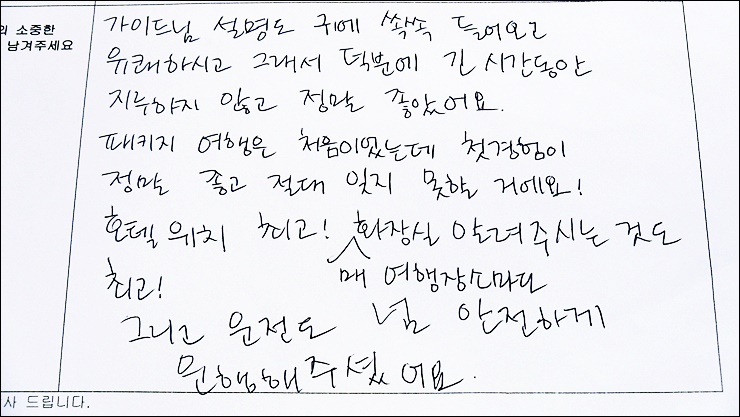 의 소중한
남겨주세요
가이드님 설명도 귀에 쏙쏙 들어오고
유쾌하시고 그래서 덕분에 긴 시간동안
지루하지 않고 정말 좋았어요.
패키지 여행은 처음이었는데 첫경험이
정말 좋고 절대 잊지 못할 거에요!
호텔 위치 최고! 화장실 알려주시는 것도
매 여행장소마다
최고!
그리고 운전도 넘 안전하게
운행해주셨어요.
사 드립니다.